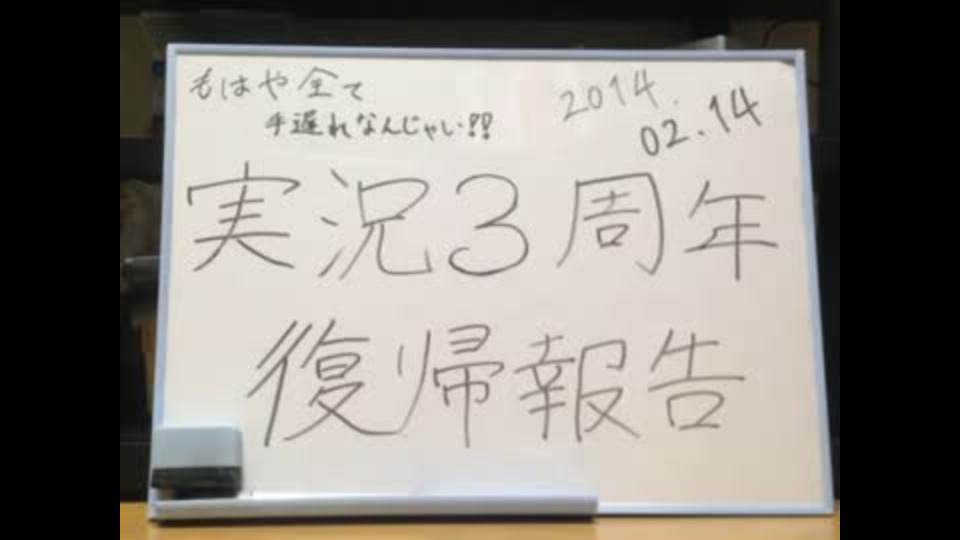 もはや全て
手遅れなんじゃい!!
2014.
02.14
実況3周年
復帰報告